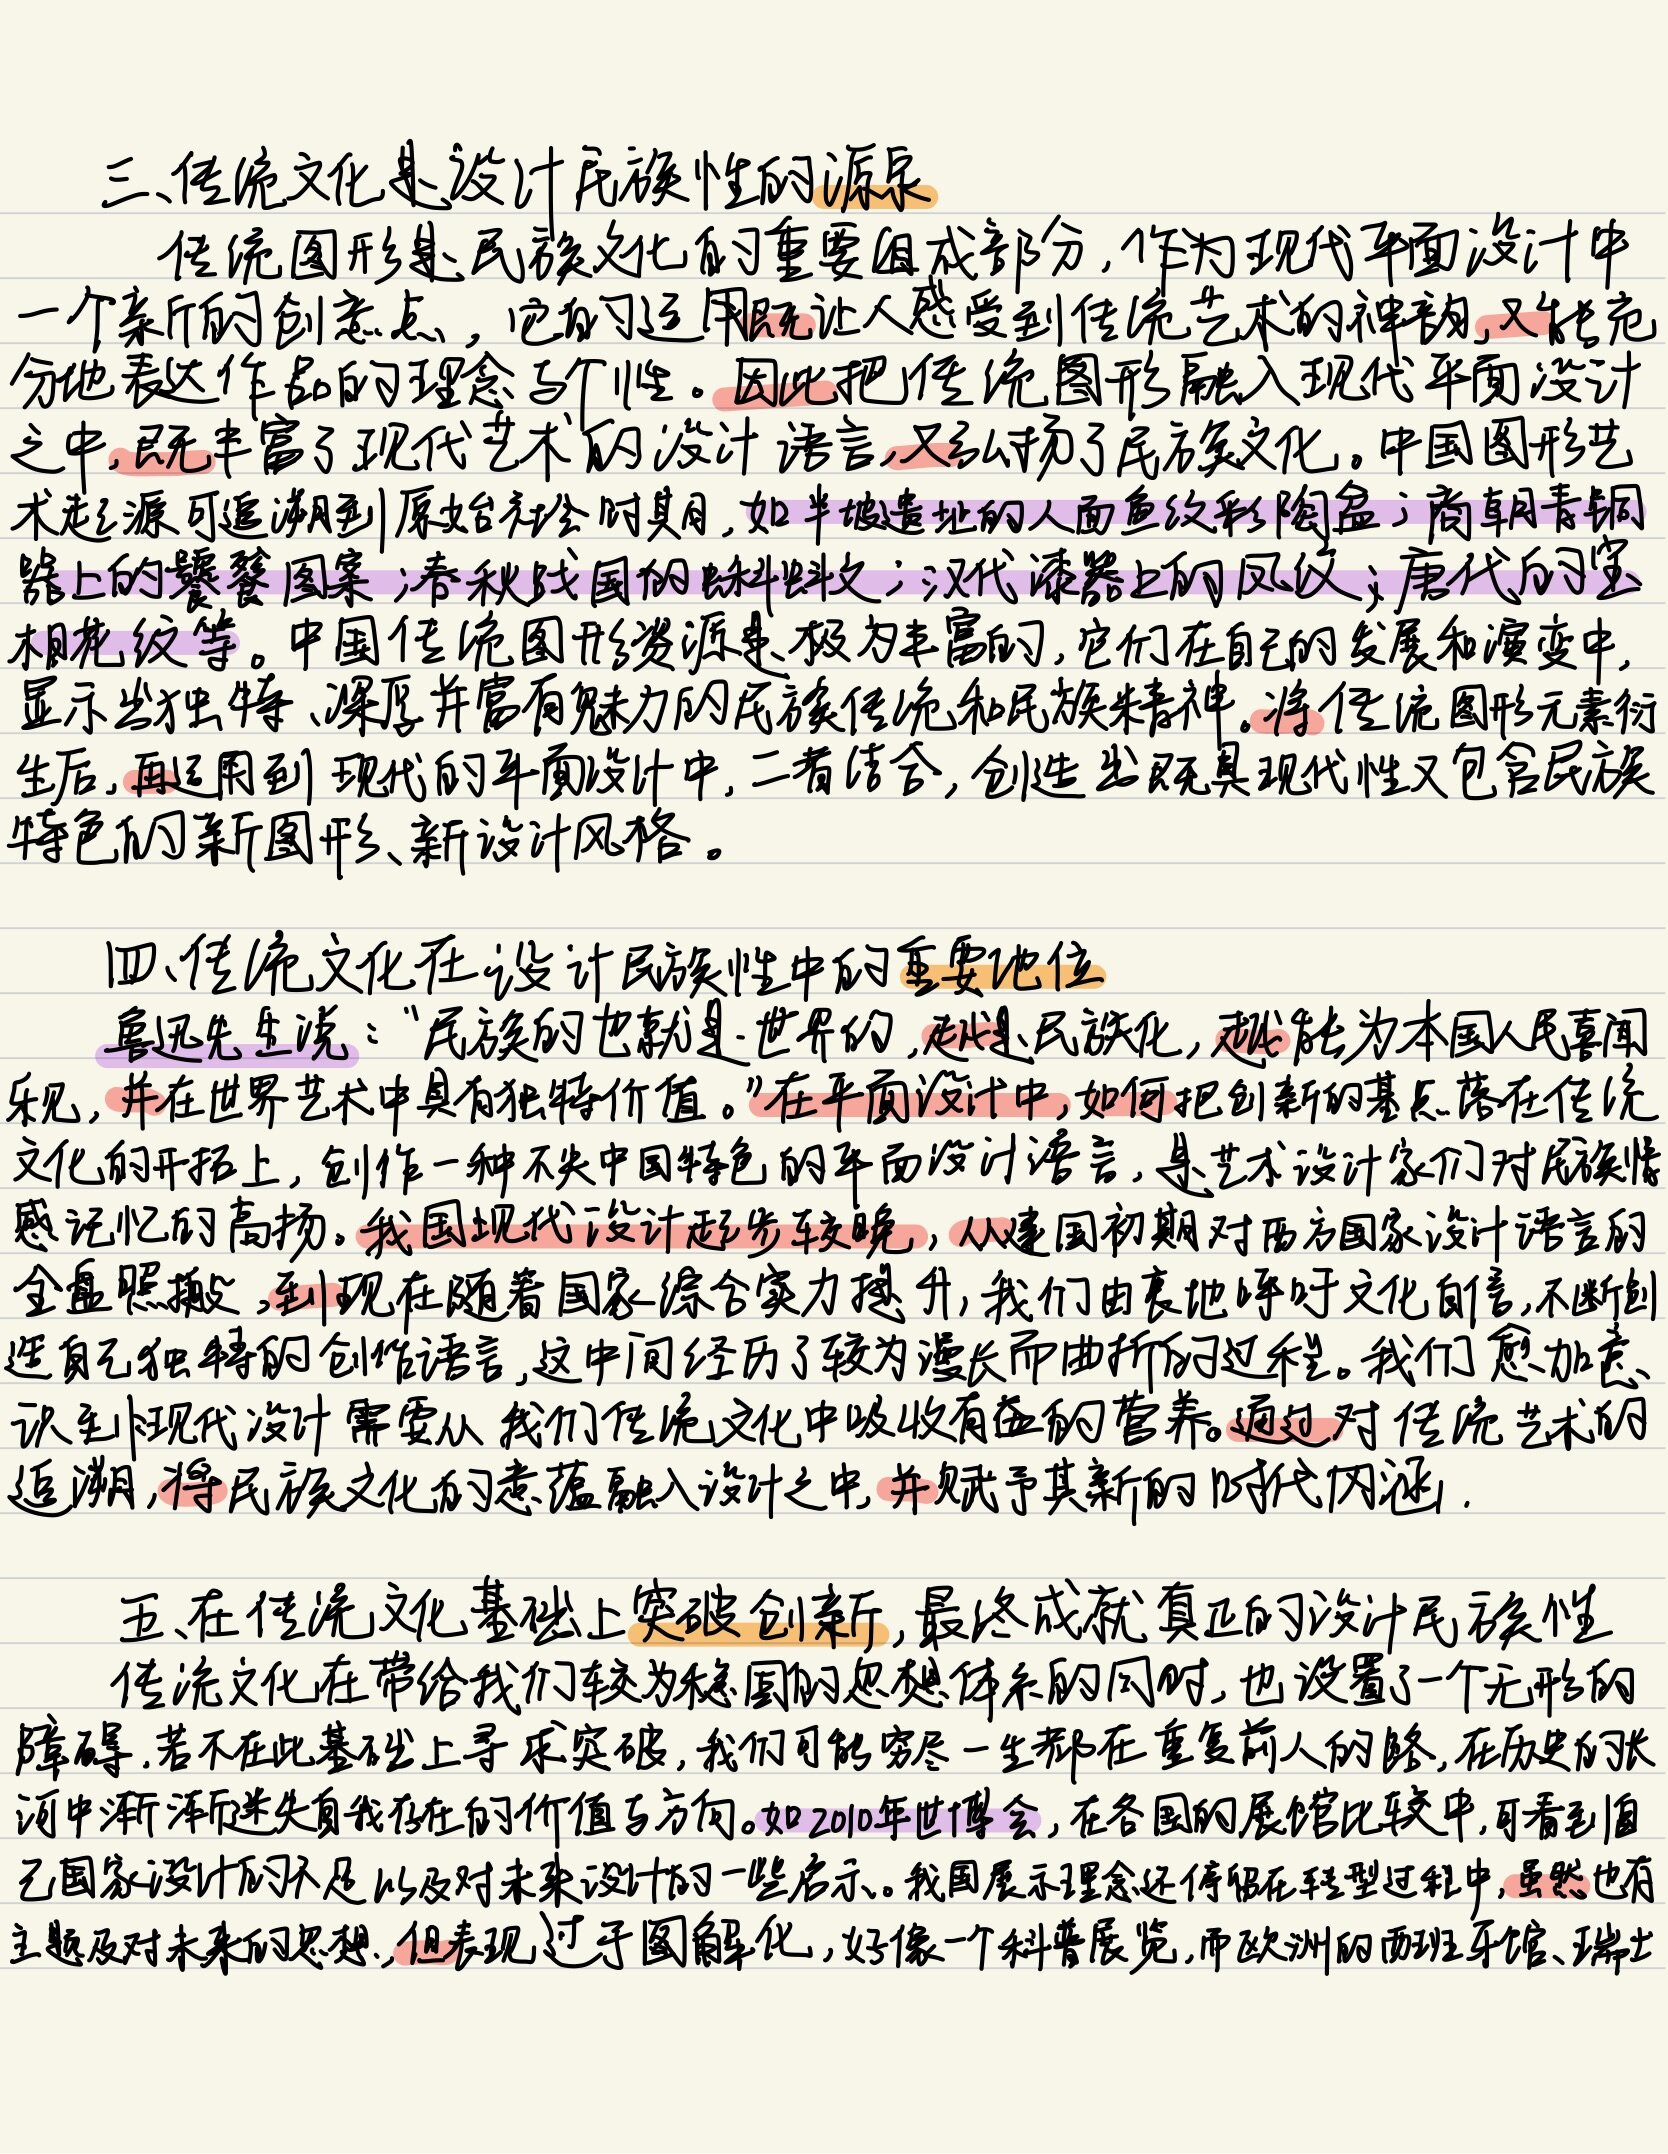 三、传统文化是设计民族性的源泉
传统图形是民族文化的重要组成部分,作为现代平面设计中
一个新的创意点,它的运用既让人感受到传统艺术的神韵,又能充
分地表达作品的理念与个性。因此把传统图形融入现代平面设计
之中,既丰富了现代艺术的设计语言,又弘扬了民族文化。中国图形艺
术起源可追溯到原始社会时期,如半坡遗址的人面鱼纹彩陶盆;商朝青铜
器上的饕餮图案;春秋战国的蝌蚪文;汉代漆器上的凤纹;唐代的宝
相花纹等。中国传统图形资源是极为丰富的,它们在自己的发展和演变中,
显示出独特、深厚并富有魅力的民族传统和民族精神。将传统图形元素衍
生后,再运用到现代的平面设计中,二者结合,创造出既具现代性又包含民族
特色的新图形、新设计风格。
四、传统文化在设计民族性中的重要地位
鲁迅先生说:“民族的也就是世界的,越是民族化,越能为本国人民喜闻
乐见,并在世界艺术中具有独特价值。”在平面设计中,如何把创新的基点落在传统
文化的开拓上,创作一种不失中国特色的平面设计语言,是艺术设计家们对民族情
感记忆的高扬。我国现代设计起步较晚,从建国初期对西方国家设计语言的
全盘照搬,到现在随着国家综合实力提升,我们由衷地呼吁文化自信,不断创
造自己独特的创作语言,这中间经历了较为漫长而曲折的过程。我们愈加意
识到现代设计需要从我们传统文化中吸收有益的营养。通过对传统艺术的
追溯,将民族文化的意蕴融入设计之中,并赋予其新的时代内涵.
五、在传统文化基础上突破创新,最终成就真正的设计民族性
传统文化在带给我们较为稳固的思想体系的同时,也设置了一个无形的
障碍.若不在此基础上寻求突破,我们可能穷尽一生都在重复前人的路,在历史的长
河中渐渐迷失自我存在的价值与方向。如2010年世博会,在各国的展馆比较中,可看到自
己国家设计的不足以及对未来设计的一些启示。我国展示理念还停留在转型过程中,虽然也有
主题及对未来的思想,但表现过于图解化,好像一个科普展览,而欧洲的西班牙馆、瑞士